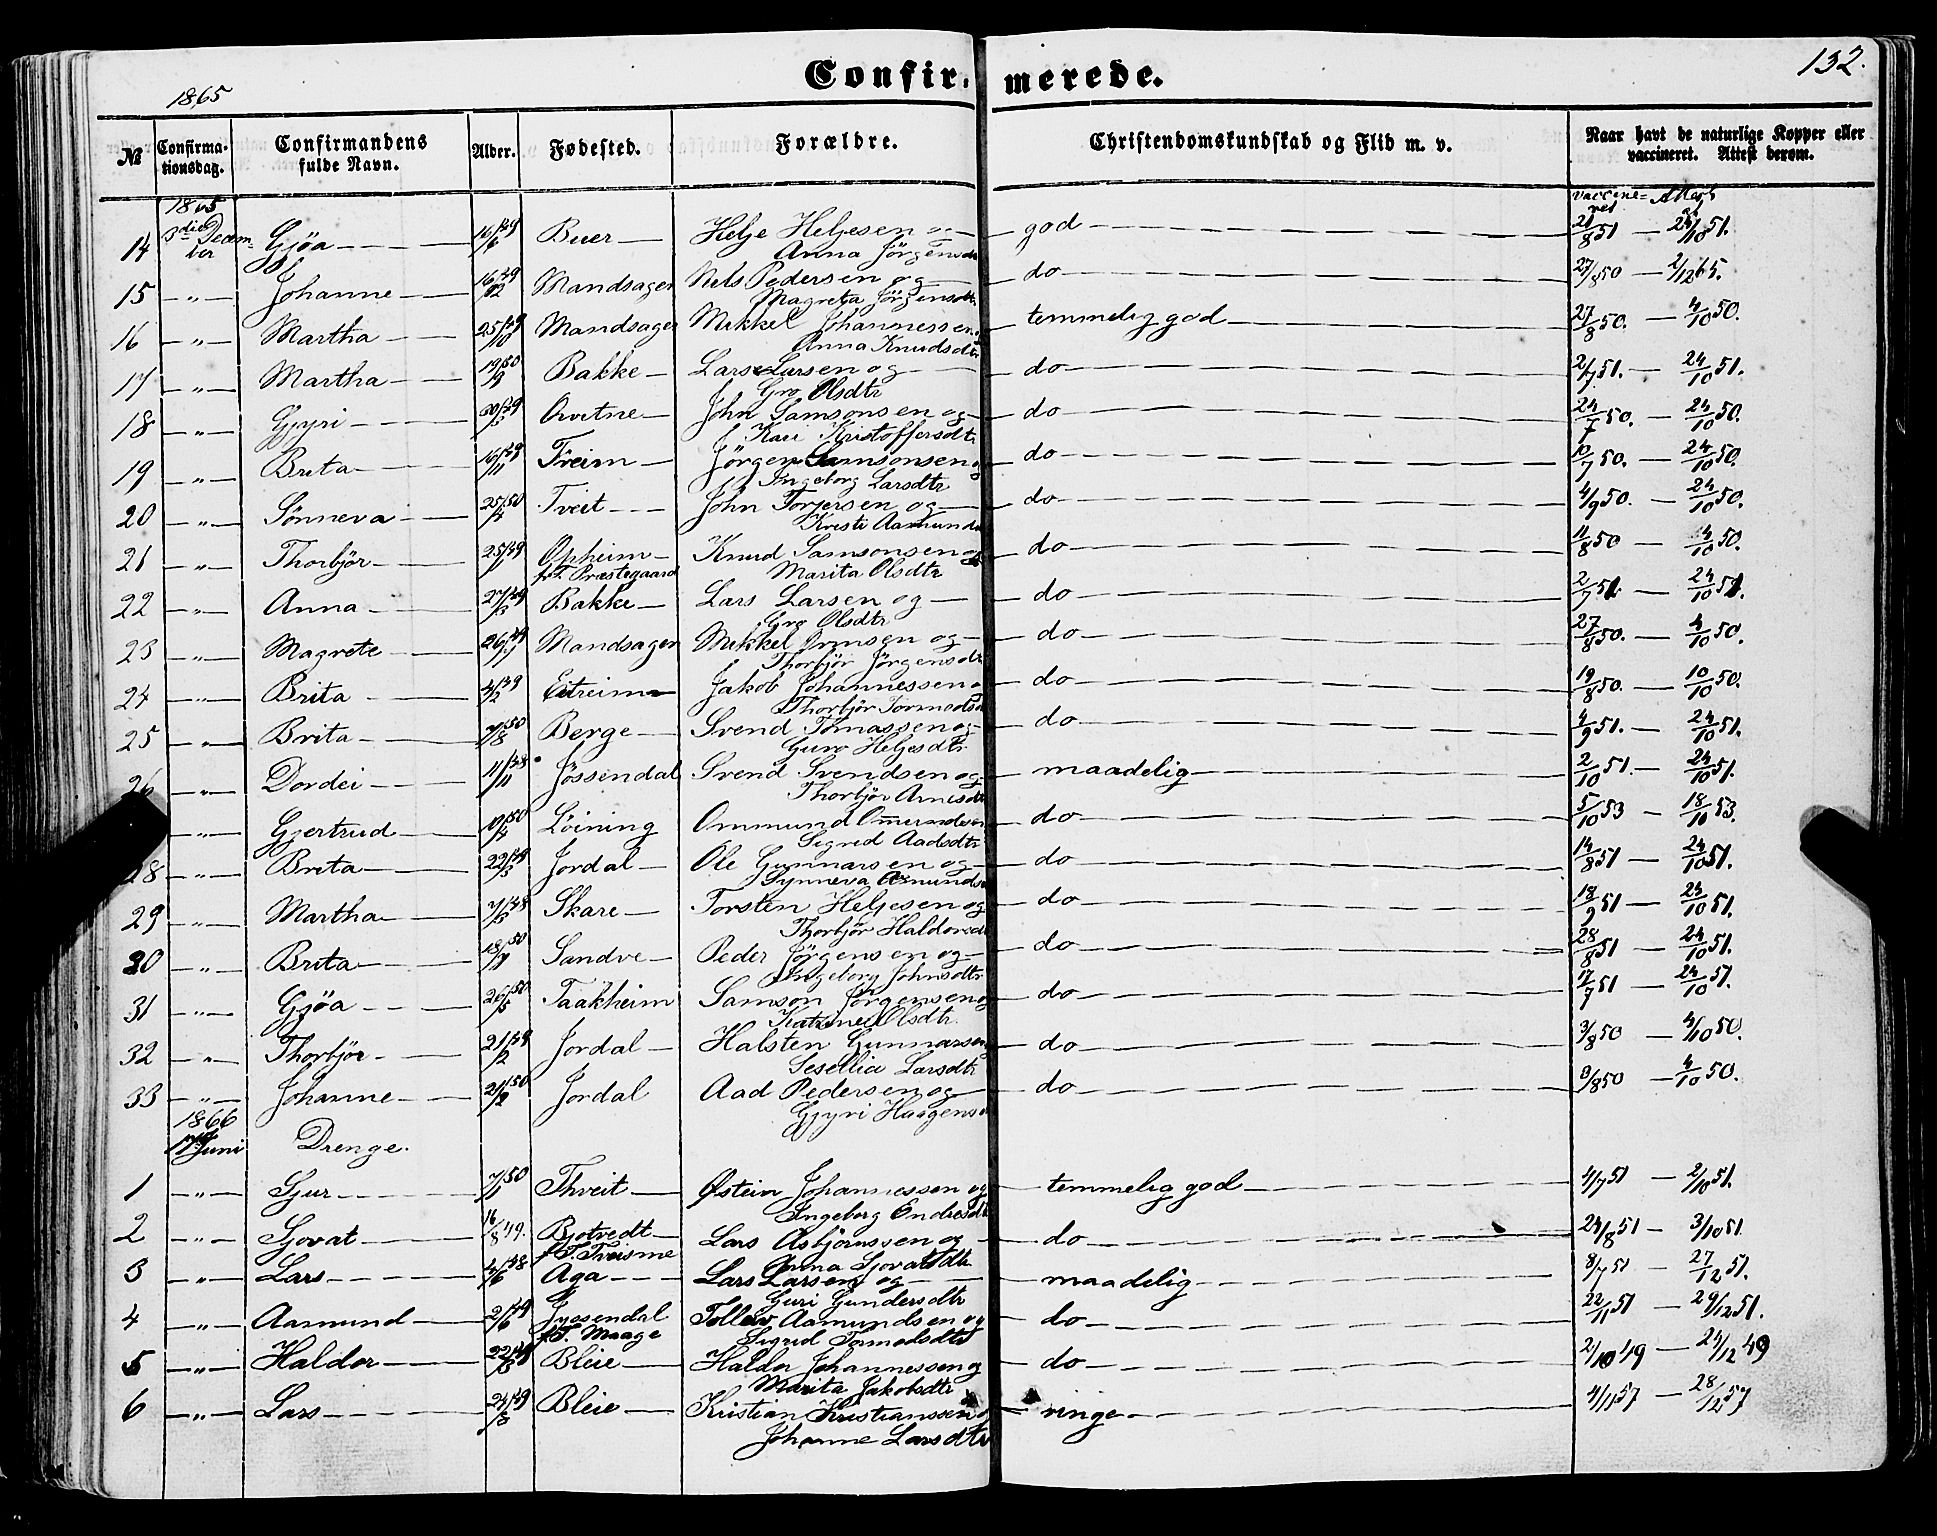 132.
Confirmerede.
1865
№ Confirmationsdag. Confirmandens fulde Navn. Alder. Fødested. Forældre. Christendomskundskab og Flid m. v. Naar havt de naturlige Kopper eller vaccineret. Attest derom.
1865 3die December
14 Gjøa Buer Helje Heljesen og Anna Jörgensdtr god 21/8 51 — 24/10 51.
15 -"- Johanne Mandsager Nels Pedersen og Magreta Jörgensdtr do 27/8 50 — 2/12 65.
16 -"- Martha 25/10 49 Mandsager Mikkel Johannessen Anna Knudsdtr temmelig god 27/8 50. — 4/10 50.
17 -"- Martha Bakke Lars Larsen og Gro Olsdtr do 2/7 51. — 24/10 51.
18 -"- Gjyri Qvitne John Samsonsen og Kari Kristoffersdtr do 24/7 50. — 24/10 50.
19 -"- Brita 16/11 49 Freim Jörgen Samsonsen og Ingeborg Larsdtr do 10/7 50. — 24/10 50.
20 -"- Sönneva Tveit John Torjersen og Kristi Aamunds do 4/9 50. — 24/10 50.
21 -"- Thorbjör Opheim f.T. Præstegaard Knud Samsonsen og Marita Olsdtr do 11/8 50 — 4/10 50.
22 -"- Anna Bakke Lars Larsen og Gro Olsdtr do 2/7 51. — 24/10 51.
23 -"- Magrete Mandsager Mikkel Ormsen og Thorbjör Jörgensdtr do 27/8 50. — 4/10 50.
24 -"- Brita Eitreim Jakob Johannessen Thorbjör Tormodsd do 19/8 50. — 10/10 50.
25 -"- Brita Berge Svend Tomassen og Guro Heljesdtr do 4/9 51. — 24/10 51.
26 -"- Dordei 11/11 48 Jössendal Svend Svendsen og Thorbjör Arnesdtr maadelig 2/10 51. — 24/10 51.
-"- Gjertrud Löining Ommund Ommundsen Sigrid Aadsdtr do 5/10 53 — 18/10 53.
28 -"- Brita Jordal Ole Gunnarsen og Synneva Amunds do 14/8 51 — 24/10 51.
29 -"- Martha Skare Torsten Heljesen og Thorbjör Haldorsd do 18/9 51 — 24/10 51.
30 -"- Brita Sandve Peder Jörgensen og Ingeborg Johnsdtr do 28/8 51 — 24/10 51.
31 -"- Gjøa Taakheim Samson Jörgensen og Katrine Olsdtr. do 17/7 51 — 24/10 51.
32 -"- Thorbjör Jordal Halsten Gunnarsen Sesellia Larsdtr do 3/8 50 — 4/10 50.
33 -"- Johanne Jordal Aad Pedersen og Gjyri Haagens do 3/8 50 — 4/10 50.
1866 Juni Drenge.
1 -"- Sjur Thveit Östein Johannessen og Ingeborg Endresdtr temmelig god 4/7 51 — 2/10 51.
2 -"- Sjovat 16/8 49. Bjotvedt f.T. Tveisme Lars Asbjörnssen og Anna Sjovatsdtr do 24/8 51 — 3/10 51
3 -"- Lars Aga Lars Larsen og Guri Gundersdtr maadelig 8/7 51 — 27/12 51.
4 -"- Aamund 2/6 49 Jyssendal f.T. Maage Tollev Aamundsen og Sigrid Tormodsdtr do 22/11 51 — 29/12 51.
5 -"- Haldor Bleie Haldor Johannessen og Marita Jakobsdtr do 2/10 49 — 24/12 49
6 -"- Lars Bleie Kristian Kristianssen og Johanne Larsdtr ringe 4/11 57 — 28/12 57